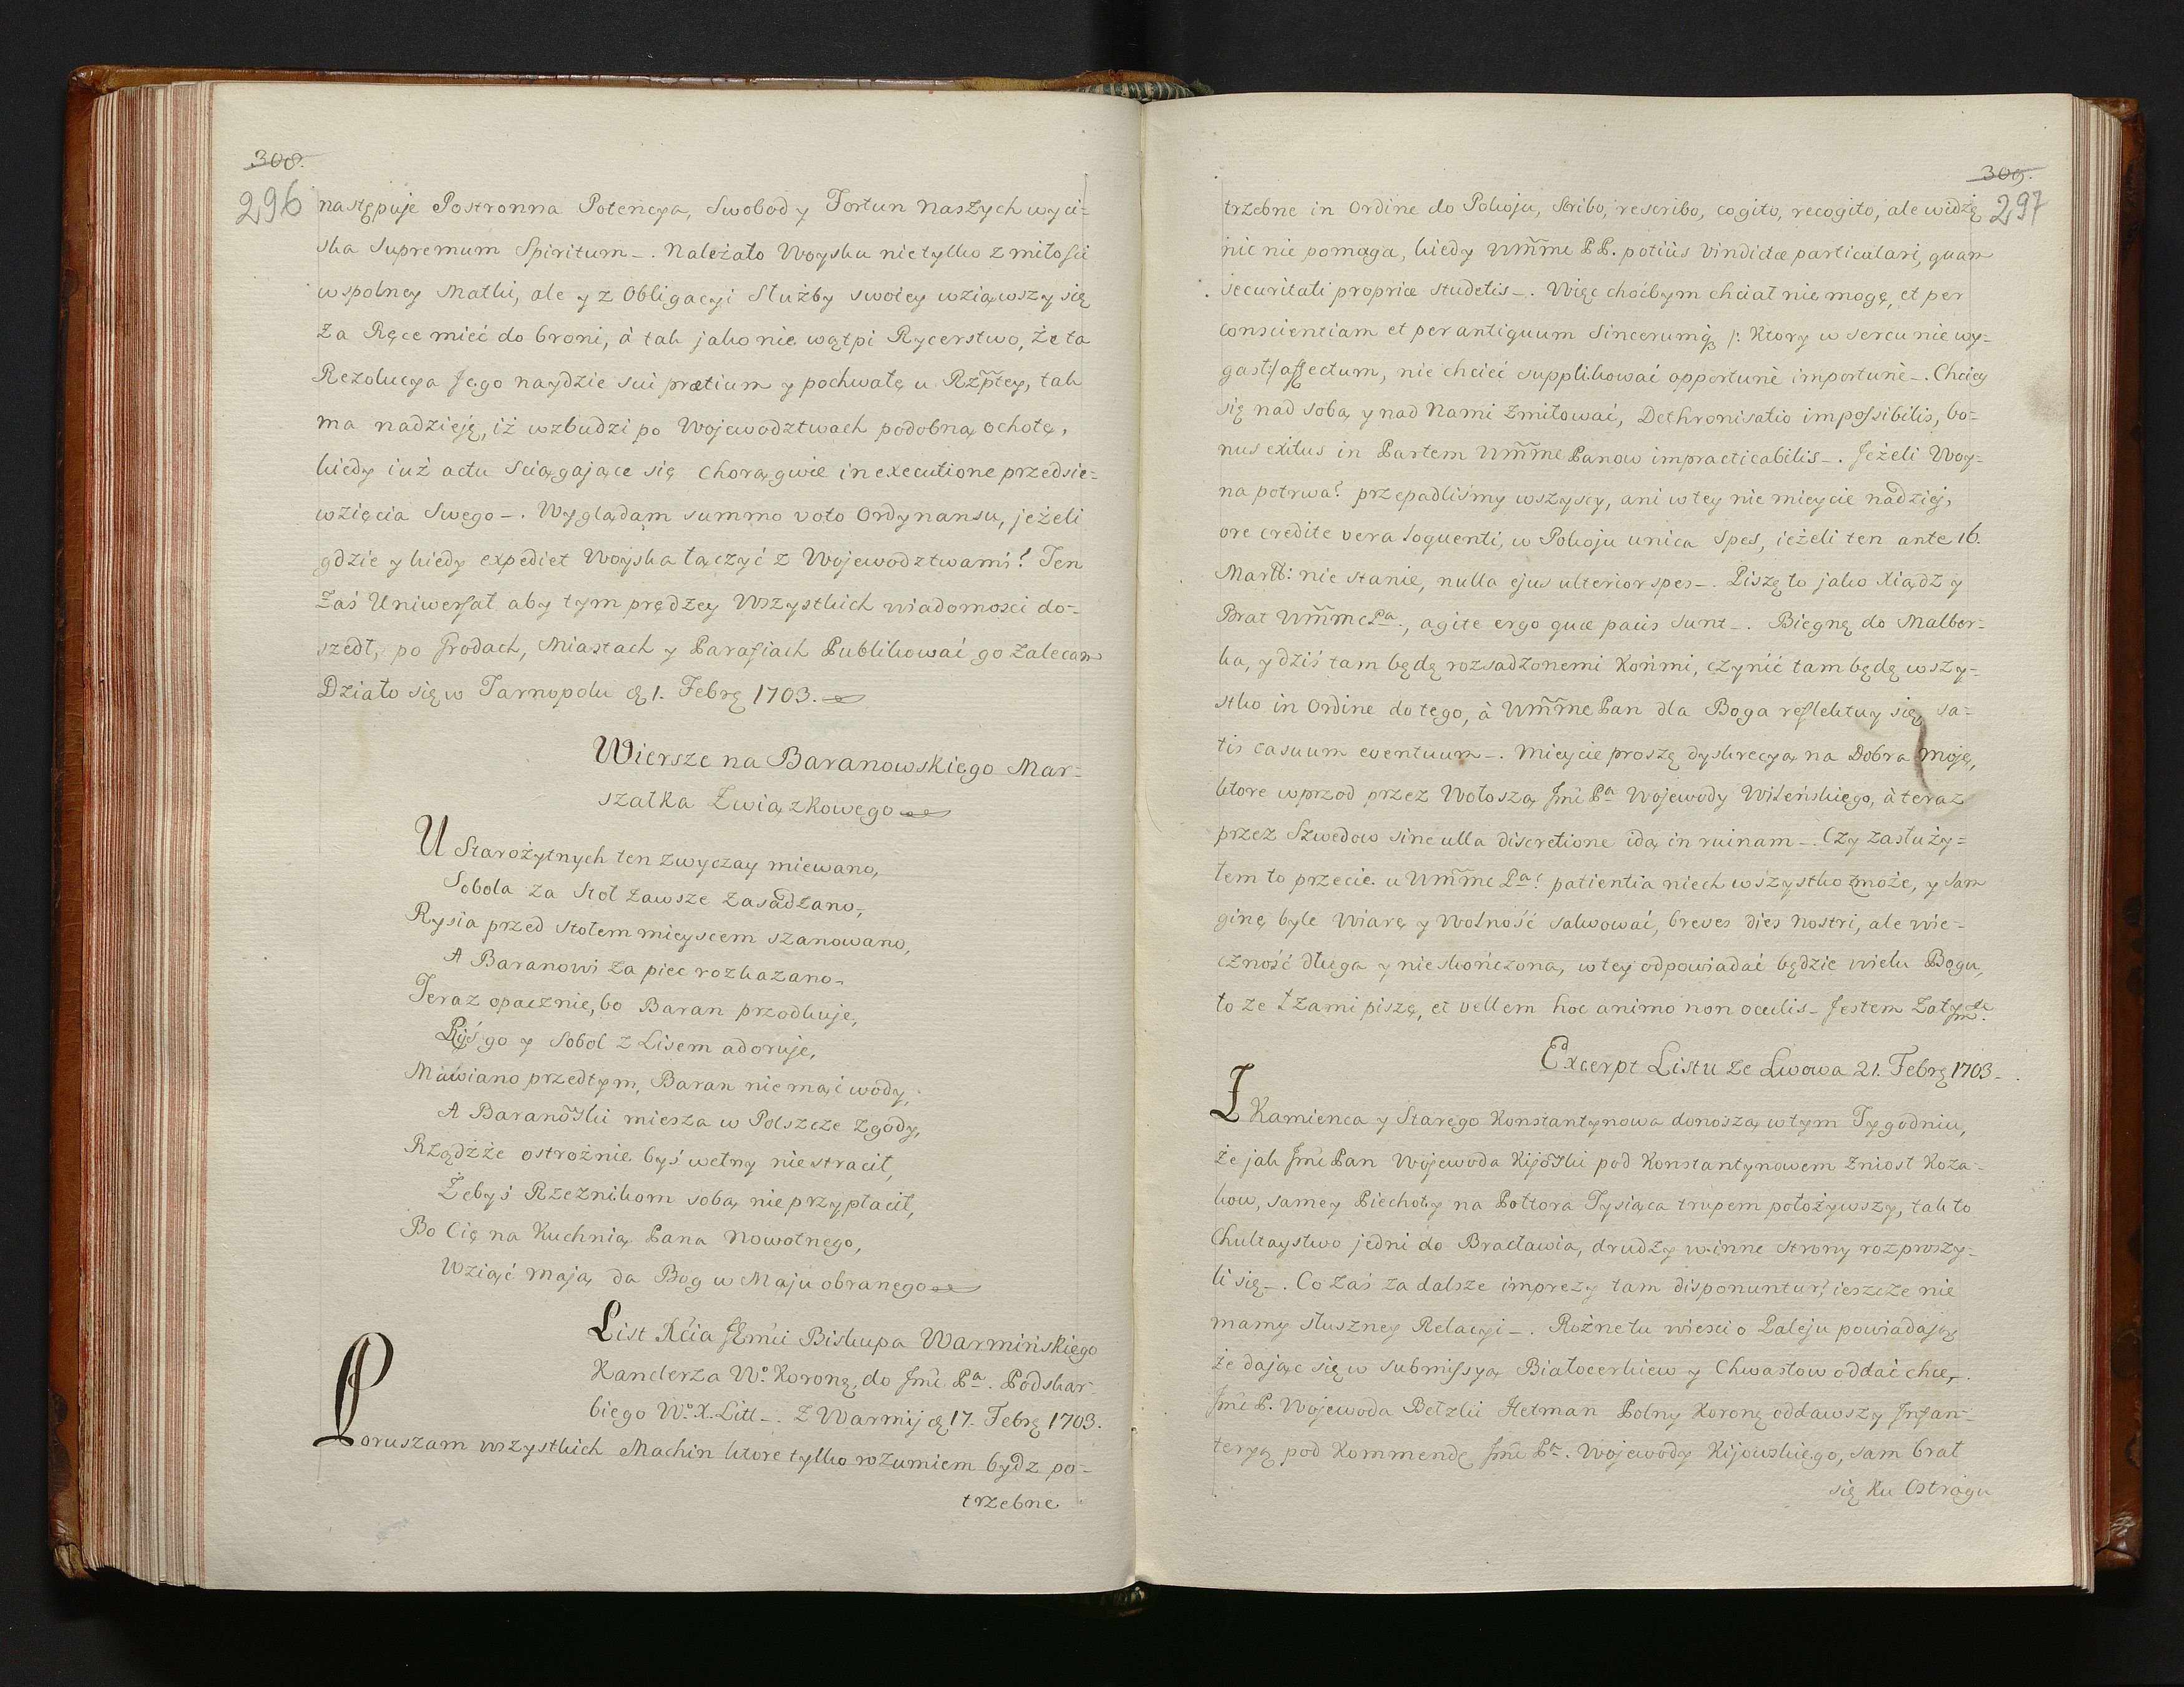 308.
296
następuje Postronna Potencya, Swobod y Fortun Naszych wyci=
ska Supremum Spiritum_. Należało Woysku nietylko z miłosci
wspolney Matki, ale y z Obligacyi Służby swoiey wziąwszy się
za Ręce mieć do broni, à tak jako nie wątpi Rycerstwo, że ta
Rezolucya Jego naydzie sui prætium y pochwałę u Rzp̃tey, tak
ma nadzieję, iż wzbudzi po Wojewodztwach podobną ochotę,
kiedy iuż actu Sciągające się Chorągwie in executione przedsie=
wzięcia Swego_. Wyglądam summo voto Ordynansu, jeżeli
gdzie y kiedy expediet Woyska łączyć z Wojewodztwami? Ten
zaś Uniwersał aby tym prędzey Wszystkich wiadomosci do=
szedł, po Grodach, Miastach y Parafiach Publikować go zalecam
Działo się w Tarnopolu 1. Febrę 1703.
Wiersze na Baranowskiego Mar=
szałka Związkowego
U Starożytnych ten zwyczay miewano,
Sobola za Stoł zawsze zasadzano,
Rysia przed stołem mieyscem szanowano,
A Baranowi za piec rozkazano_
Teraz opacznie, bo Baran przodkuje,
Ryś go y Sobol z Lisem adoruje,
Mawiano przedtym, Baran nie mąć wody,
A Baranõski miesza w Polszcze zgody,
Rządźże ostrożnie byś wełny niestracił,
Żebyś Rzeznikom sobą nie przypłacił,
Bo Cię na Kuchnią Pana Nowotnego,
Wziąć mają da Bog w Maju obranego
List Xcia Jmći Biskupa Warmińskiego
Kanclerza Wº. Koronę, do Jmći Pª. Podskar=
biego Wº. X. Litt_. Z Warmij 17. Febrę 1703.
Poruszam wszystkich Machin ktore tylko rozumiem bydz po=
trzebne
309.
297
trzebne in Ordine do Pokoju, scribo, rescribo, cogito, recogito, ale widzę
nic nie pomaga, kiedy Wm̃me PP. potiùs Vindictæ particulari, quam
securitati propriæ studetis_. Więc choćbym chciał nie mogę, et per
conscientiam et per antiquum Sincerumq; /: Ktory w sercu nie wy=
gasł :/ affectum, nie chcieć supplikować opportunè importunè_. Chciey
się nad sobą y nad Nami zmiłować, Dethronisatio impossibilis, bo=
nus exitus in Partem Wm̃me Panow impracticabilis_. Jeżeli Woy=
na potrwa? przepadliśmy wszyscy, ani w tey nie mieycie nadziej,
ore credite vera loquenti, w Pokoju unica Spes, ieżeli ten ante 16.
Martÿ: nie stanie, nulla ejus ulterior spes_. Piszę to jako Xiądz y
Brat Wm̃me Pª., agite ergo quæ pacis sunt_. Biegnę do Malbor=
ka, y dziś tam będę rozsadzonemi Końmi, czynić tam będę wszy=
stko in Ordine do tego, à Wm̃me Pan dla Boga reflektuy się, sa=
tis casuum eventuum_. Mieycie proszę dyskrecyą na Dobra moję,
ktore wprzod przez Wołoszą Jmći Pª Wojewody Wileńskiego, à teraz
przez Szwedow sine ulla discretione idą in ruinam_. Czy zasłuży=
łem to przecie u Wm̃me Pª? patientia niech wszystko zmoże, y sam
ginę byle Wiarę y Wolność salwować, breves dies Nostri, ale wie=
czność długa y nieskończona, w tey odpowiadać będzie wielu Bogu,
to ze łzami piszę, et vellem hoc animo non oculis_ Jestem Zatym &.
Excerpt Listu ze Lwowa 21. Febrę 1703_
Z Kamienca y Starego Konstantynowa donoszą w tym Tygodniu,
że jak Jmći Pan Wojewoda Kijõski pod Konstantynowem zniosł Koza=
kow, samey Piechoty na Połtora Tysiąca trupem położywszy, tak to
Chultaystwo jedni do Bracławia, drudzy w inne strony rozproszy=
li się_. Co zaś za dalsze imprezy tam disponuntur? ieszcze nie
mamy słuszney Relacyi_. Rożne tu wiesci o Paleju powiadają
że dając się w submissyą Białocerkiew y Chwastow oddać chce_.
Jmći P. Wojewoda Bełzki Hetman Polny Koronę oddawszy Infan=
teryą pod Kommendę Jmći Pª. Wojewody Kijowskiego, sam brał
się Ku Ostrogu